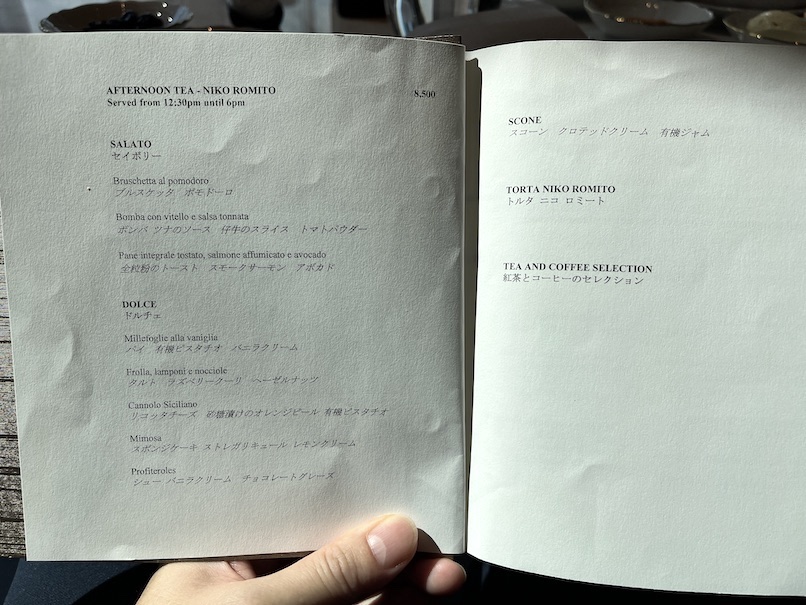 AFTERNOON TEA - NIKO ROMITO 8,500
Served from 12:30pm until 6pm
SALATO
セイボリー
Bruschetta al pomodoro
ブルスケッタ ポモドーロ
Bomba con vitello e salsa tonnata
ボンバ ツナのソース 仔牛のスライス トマトパウダー
Pane integrale tostato, salmone affumicato e avocado
全粒粉のトースト スモークサーモン アボカド
DOLCE
ドルチェ
Millefoglie alla vaniglia
パイ 有機ピスタチオ バニラクリーム
Frolla, lamponi e nocciole
タルト ラズベリークーリ ヘーゼルナッツ
Cannolo Siciliano
リコッタチーズ 砂糖漬けのオレンジピール 有機ピスタチオ
Mimosa
スポンジケーキ ストレガリキュール レモンクリーム
Profiteroles
シュー バニラクリーム チョコレートグレーズ
SCONE
スコーン クロテッドクリーム 有機ジャム
TORTA NIKO ROMITO
トルタ ニコ ロミート
TEA AND COFFEE SELECTION
紅茶とコーヒーのセレクション